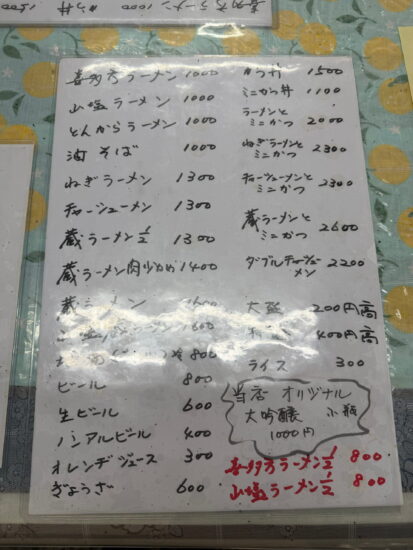 喜多方ラーメン 1000
かつ丼 1500
喜多方ラーメン 1000
山塩ラーメン 1000
とんからラーメン 1000
油そば 1000
ねぎラーメン 1300
チャーシューメン 1300
蔵ラーメン½ 1300
蔵ラーメン肉少なめ 1400
蔵ラーメン 1600
1600
800
ビール 800
生ビール 600
ノンアルビール 400
オレンヂジュース 300
ぎょうざ 600
かつ丼 1500
ミニかつ丼 1100
ラーメンと
ミニかつ 2000
ねぎラーメンと
ミニかつ 2300
チャーシューメンと
ミニかつ 2300
蔵ラーメンと
ミニかつ 2600
ダブルチャーシュー
メン 2200
大盛 200円高
400円高
ライス 300
当店 オリジナル
大吟醸 小瓶
1000円
喜多方ラーメン½ 800
山塩ラーメン½ 800